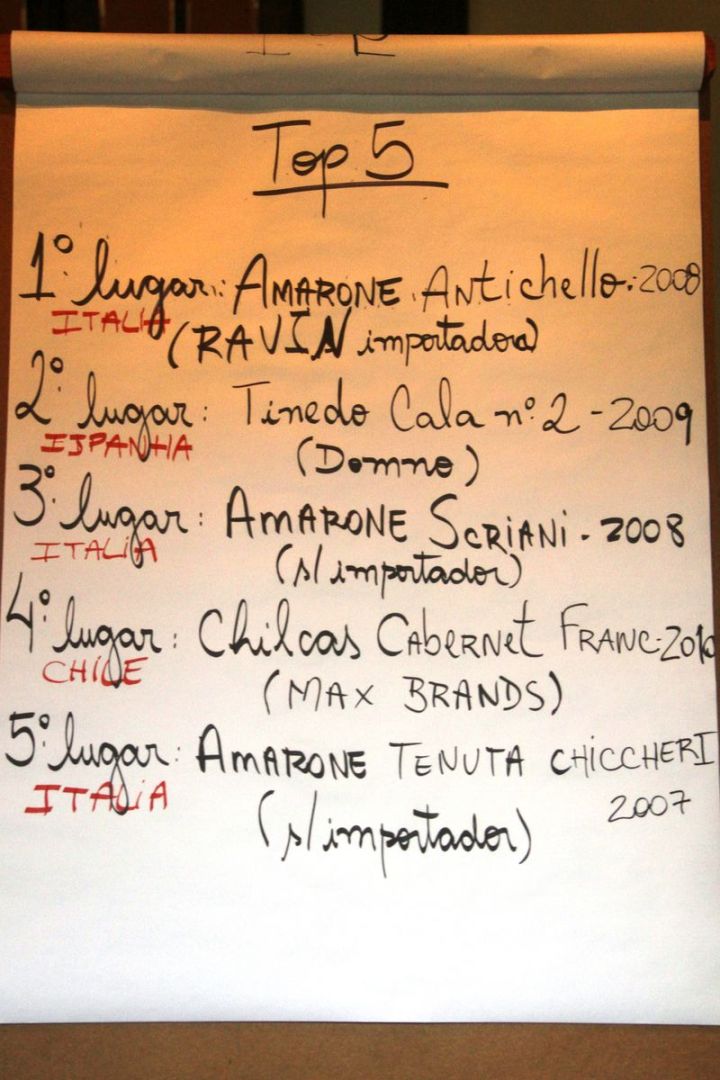 Top 5
1º lugar: AMARONE Antichello. 2008
ITALIA
(RAVIN importadora)
2º lugar: Tinedo Cala nº 2 - 2009
ESPANHA
(Domno)
3º lugar: AMARONE SCRIANI. 2008
ITALIA
(s/ importador)
4º lugar: Chilcas CABERNET FRANC. 2010
CHILE
(MAX BRANDS)
5º lugar: AMARONE TENUTA CHICCHERI
ITALIA
2007
(s/ importador)